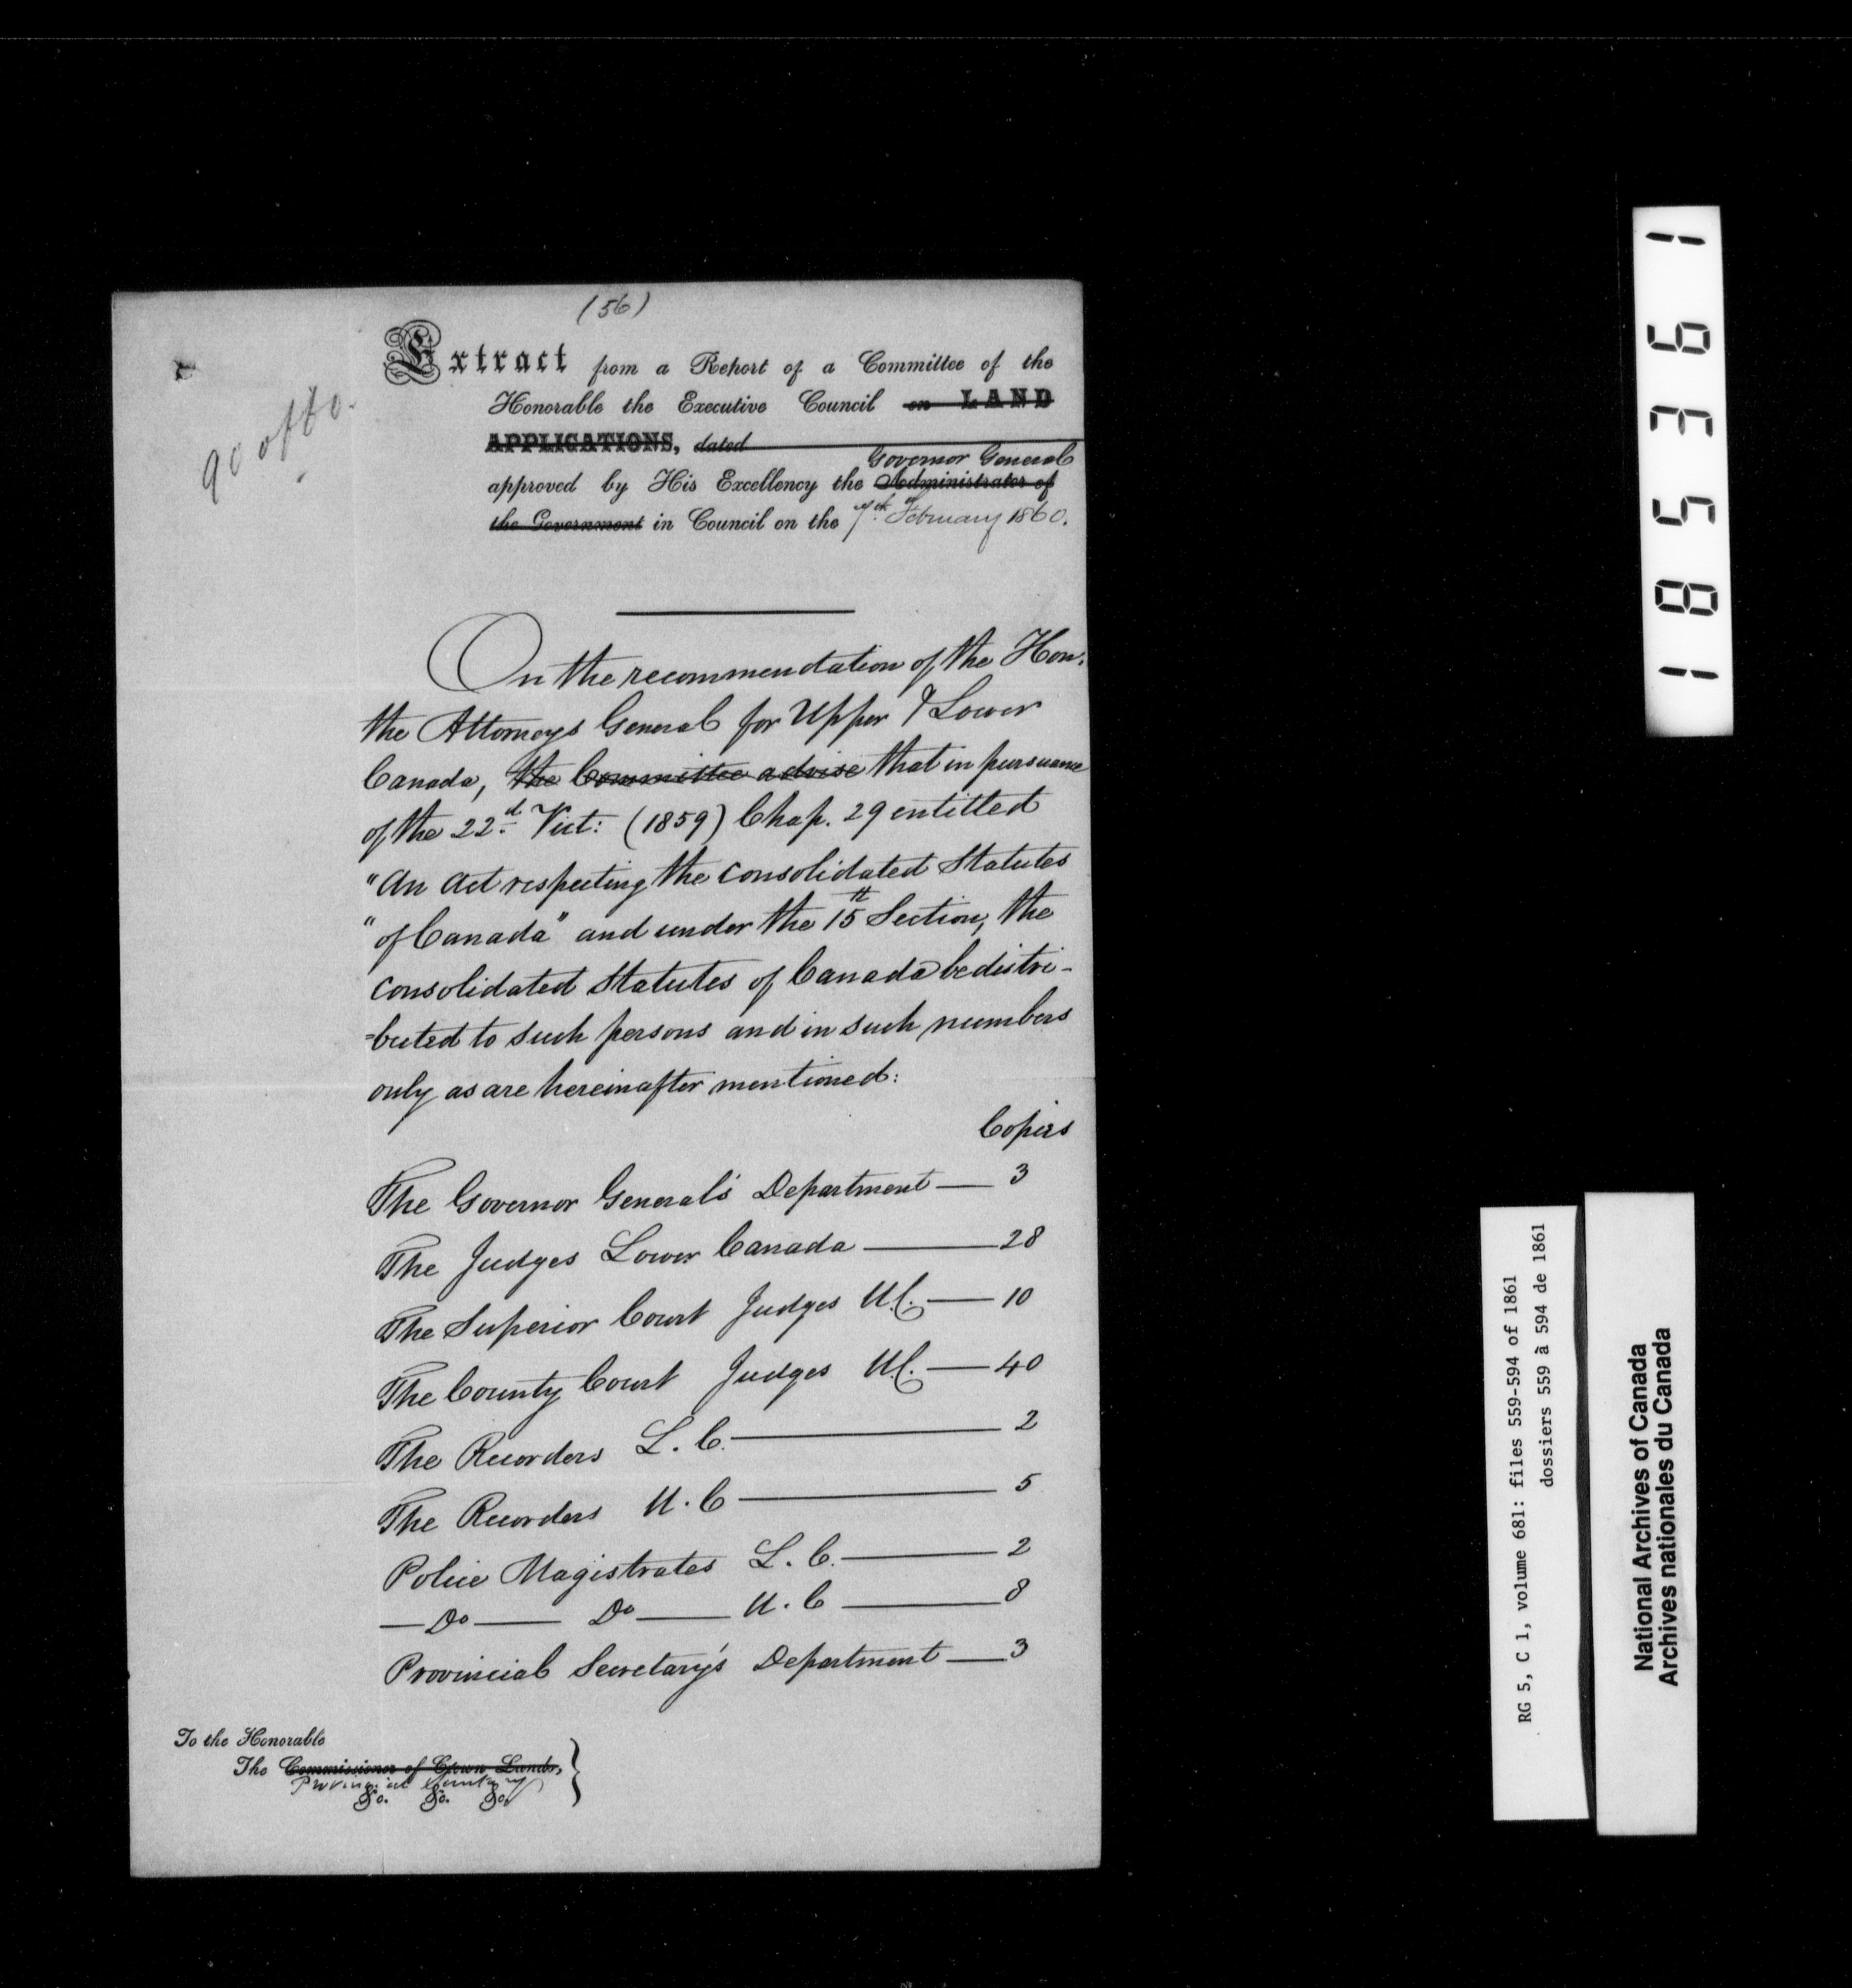 (56)
Extract from a Report of a Committee of the
Honorable the Executive Council on LAND
APPLICATIONS, dated
Governor General
approved by His Excellency the Administrator of
the Government in Council on the 7th February 1860.
On the recommendation of the Hon.
the Attorneys General for Upper & Lower
Canada, the Committee advise that in pursuance
of the 22d. Vict: (1859) Chap. 29 entitled
"An Act respecting the Consolidated Statutes
"of Canada" and under the 15th Section, the
Consolidated Statutes of Canada be distri-
=buted to such persons and in such numbers
only as are hereinafter mentioned:
Copies
The Governor General's Department — 3
The Judges Lower Canada — 28
The Superior Court Judges U.C. — 10
The County Court Judges U.C. — 40
The Recorders L.C. — 2
The Recorders U.C — 5
Police Magistrates L.C. — 2
— Do — Do — U.C — 8
Provincial Secretary's Department — 3
To the Honorable
The Commissioner of Crown Lands,
Provincial Secretary
&c. &c. &c.
185361
RG 5, C 1, volume 681: files 559-594 of 1861
dossiers 559 à 594 de 1861
National Archives of Canada
Archives nationales du Canada